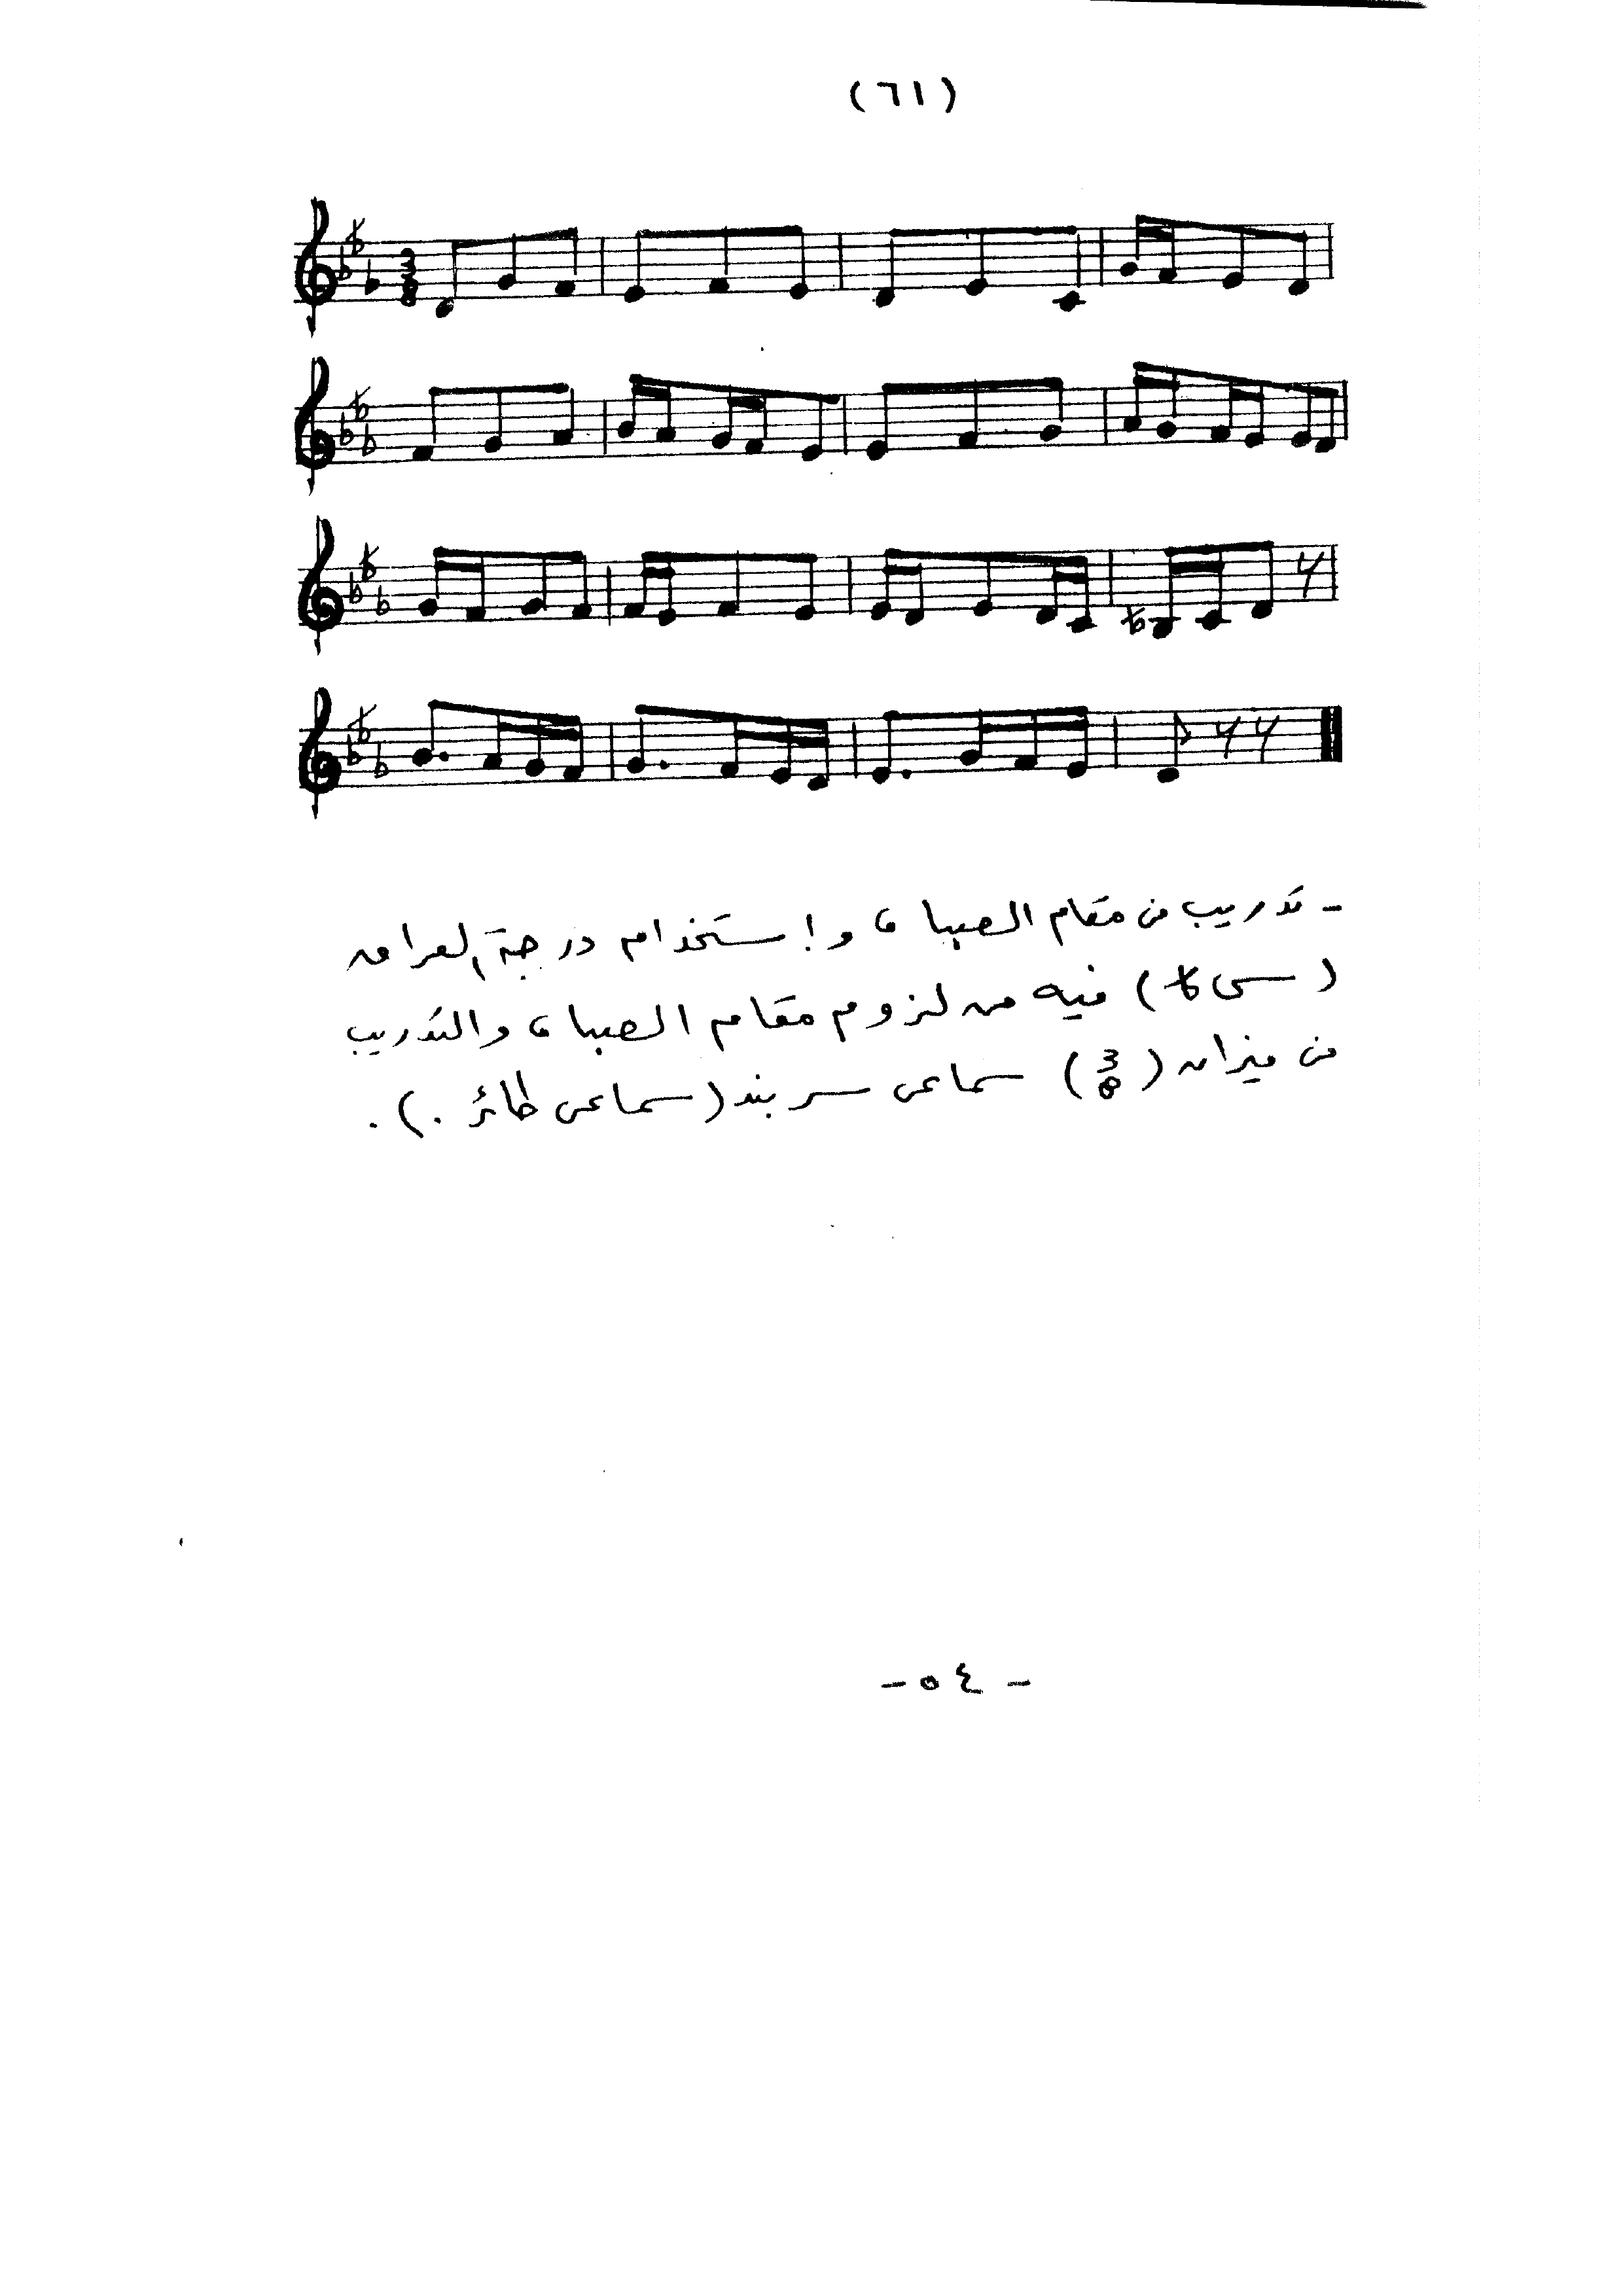 (٦١)
3
8
- تدريب من مقام الصبا ، وإستخدام درجة العراق
(سى ) فيه من لزوم مقام الصبا ، والتدريب
من ميزان (3/8) سماعى سربند (سماعى طائر .) .
- ٥٤ -